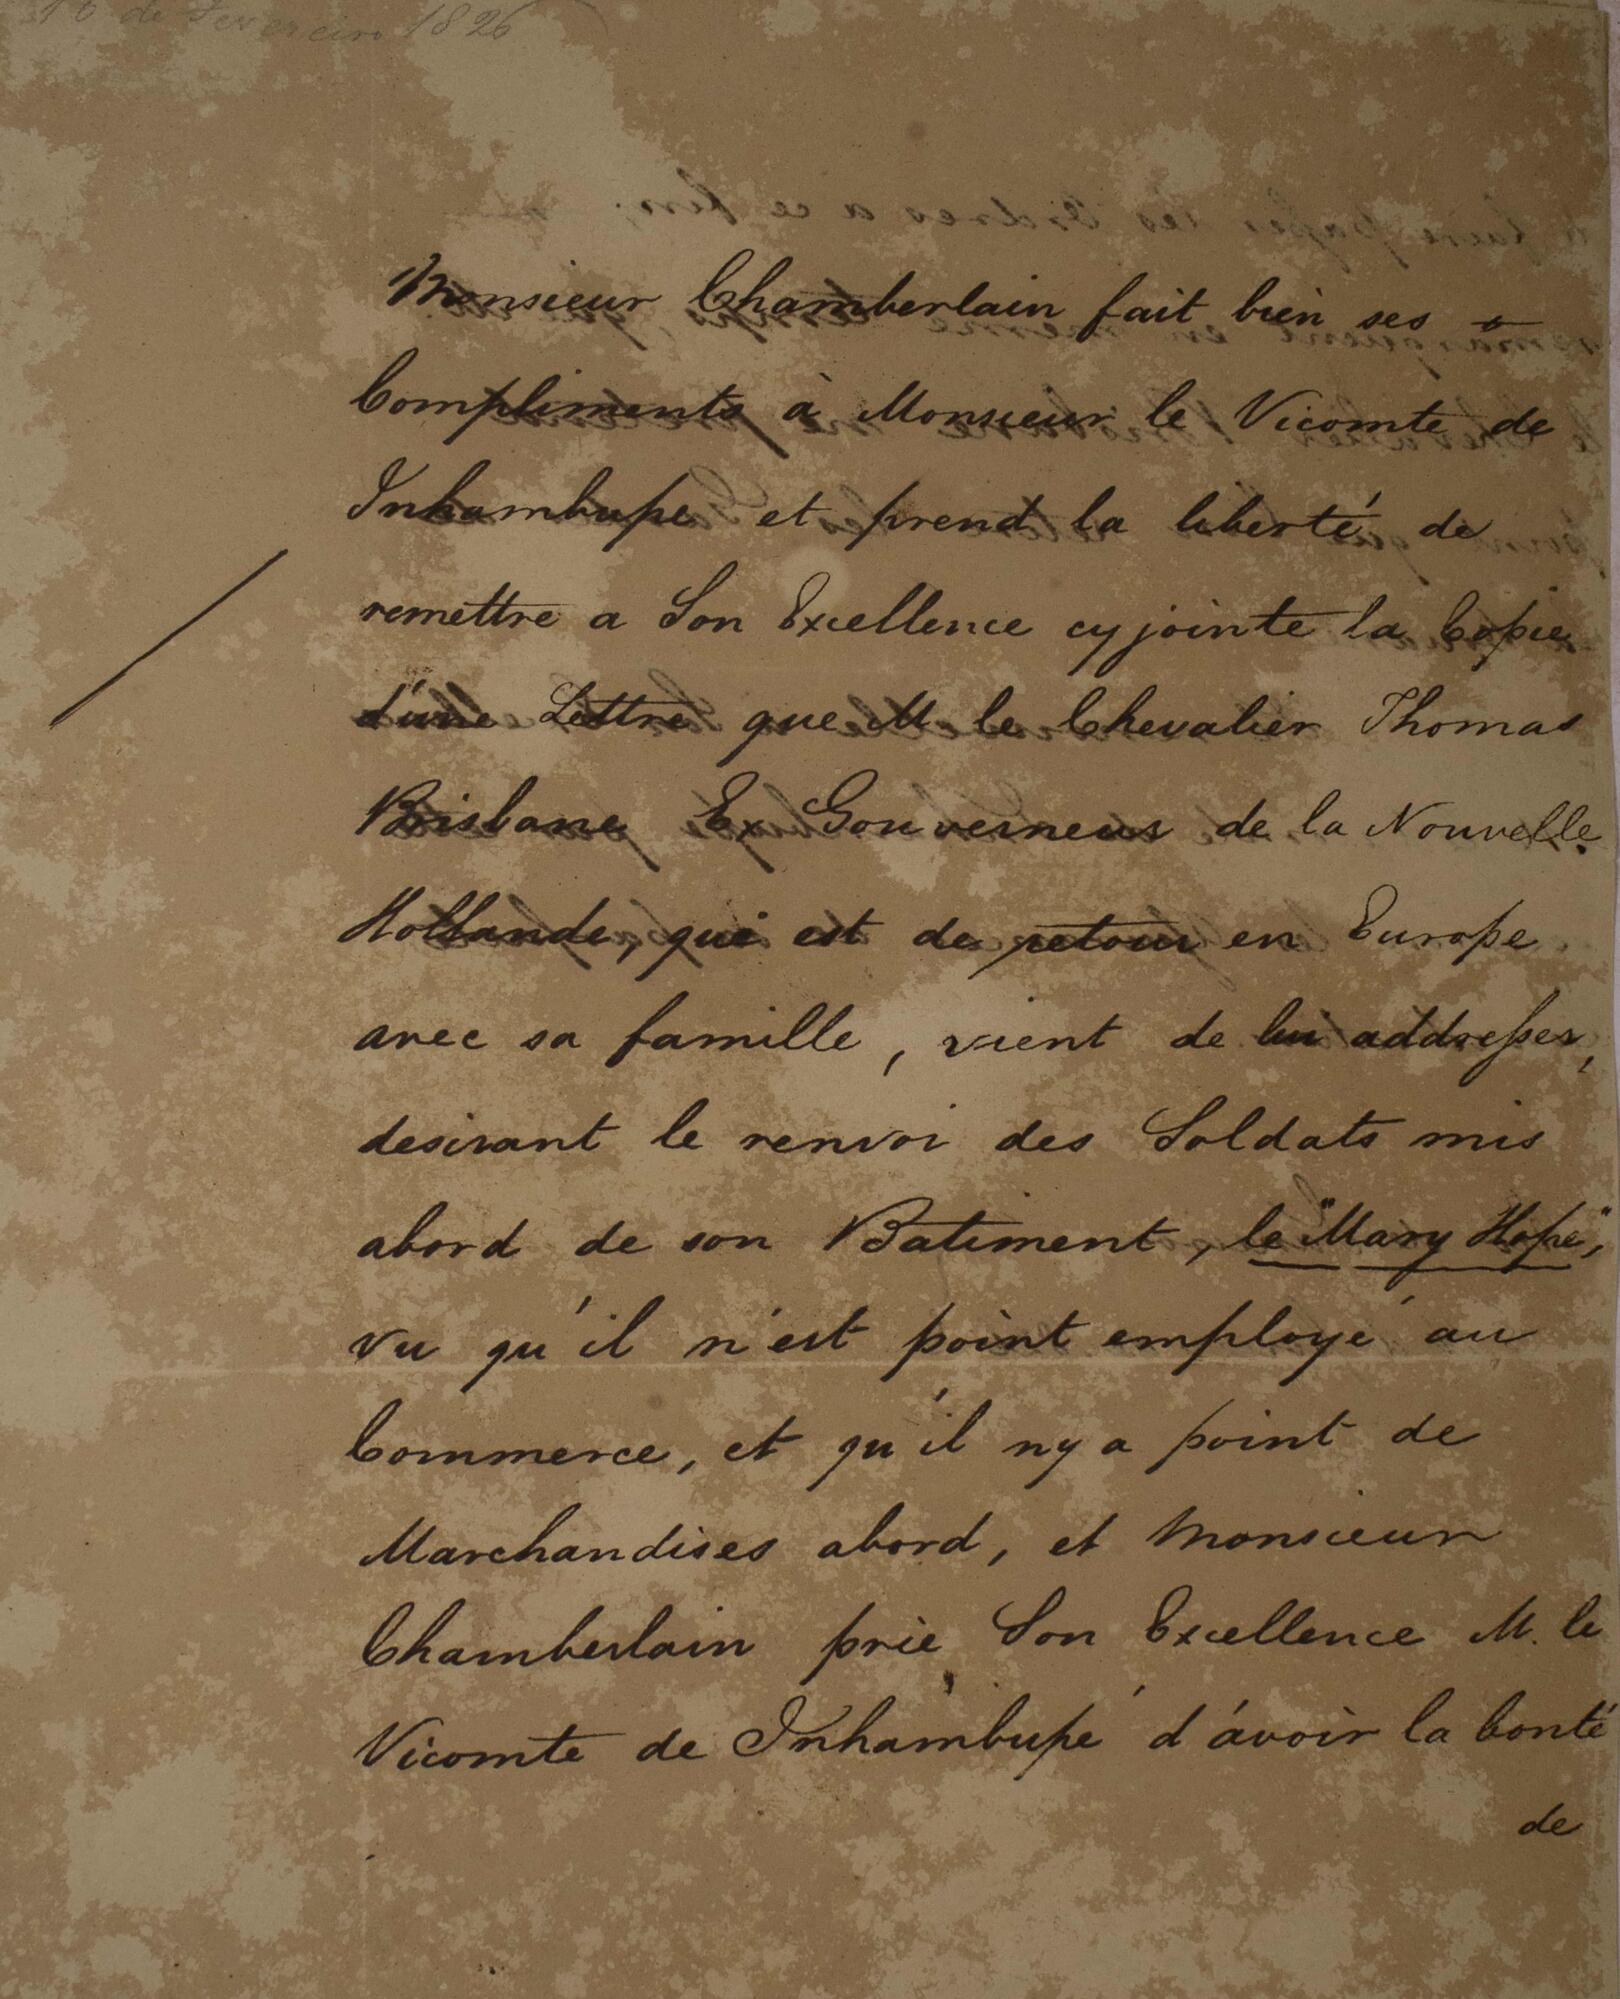 16 de Fevereiro 1826
Monsieur Chamberlain fait bien ses
Compliments à Monsieur le Vicomte de
Inhambupe et prend la liberté de
remettre a Son Excellence cy jointe la Copie
d'une Lettre que M le Chevalier Thomas
Brisbane Ex Gouverneur de la Nouvelle
Hollande, qui est de retour en Europe
avec sa famille, vient de lui addresser,
desirant le renvoi des Soldats mis
abord de son Batiment, le "Mary Hope",
vu qu'il n'est point employé au
Commerce, et qu'il ny a point de
Marchandises abord, et Monsieur
Chamberlain prie Son Excellence M. le
Vicomte de Inhambupé d'avoir la bonté
de